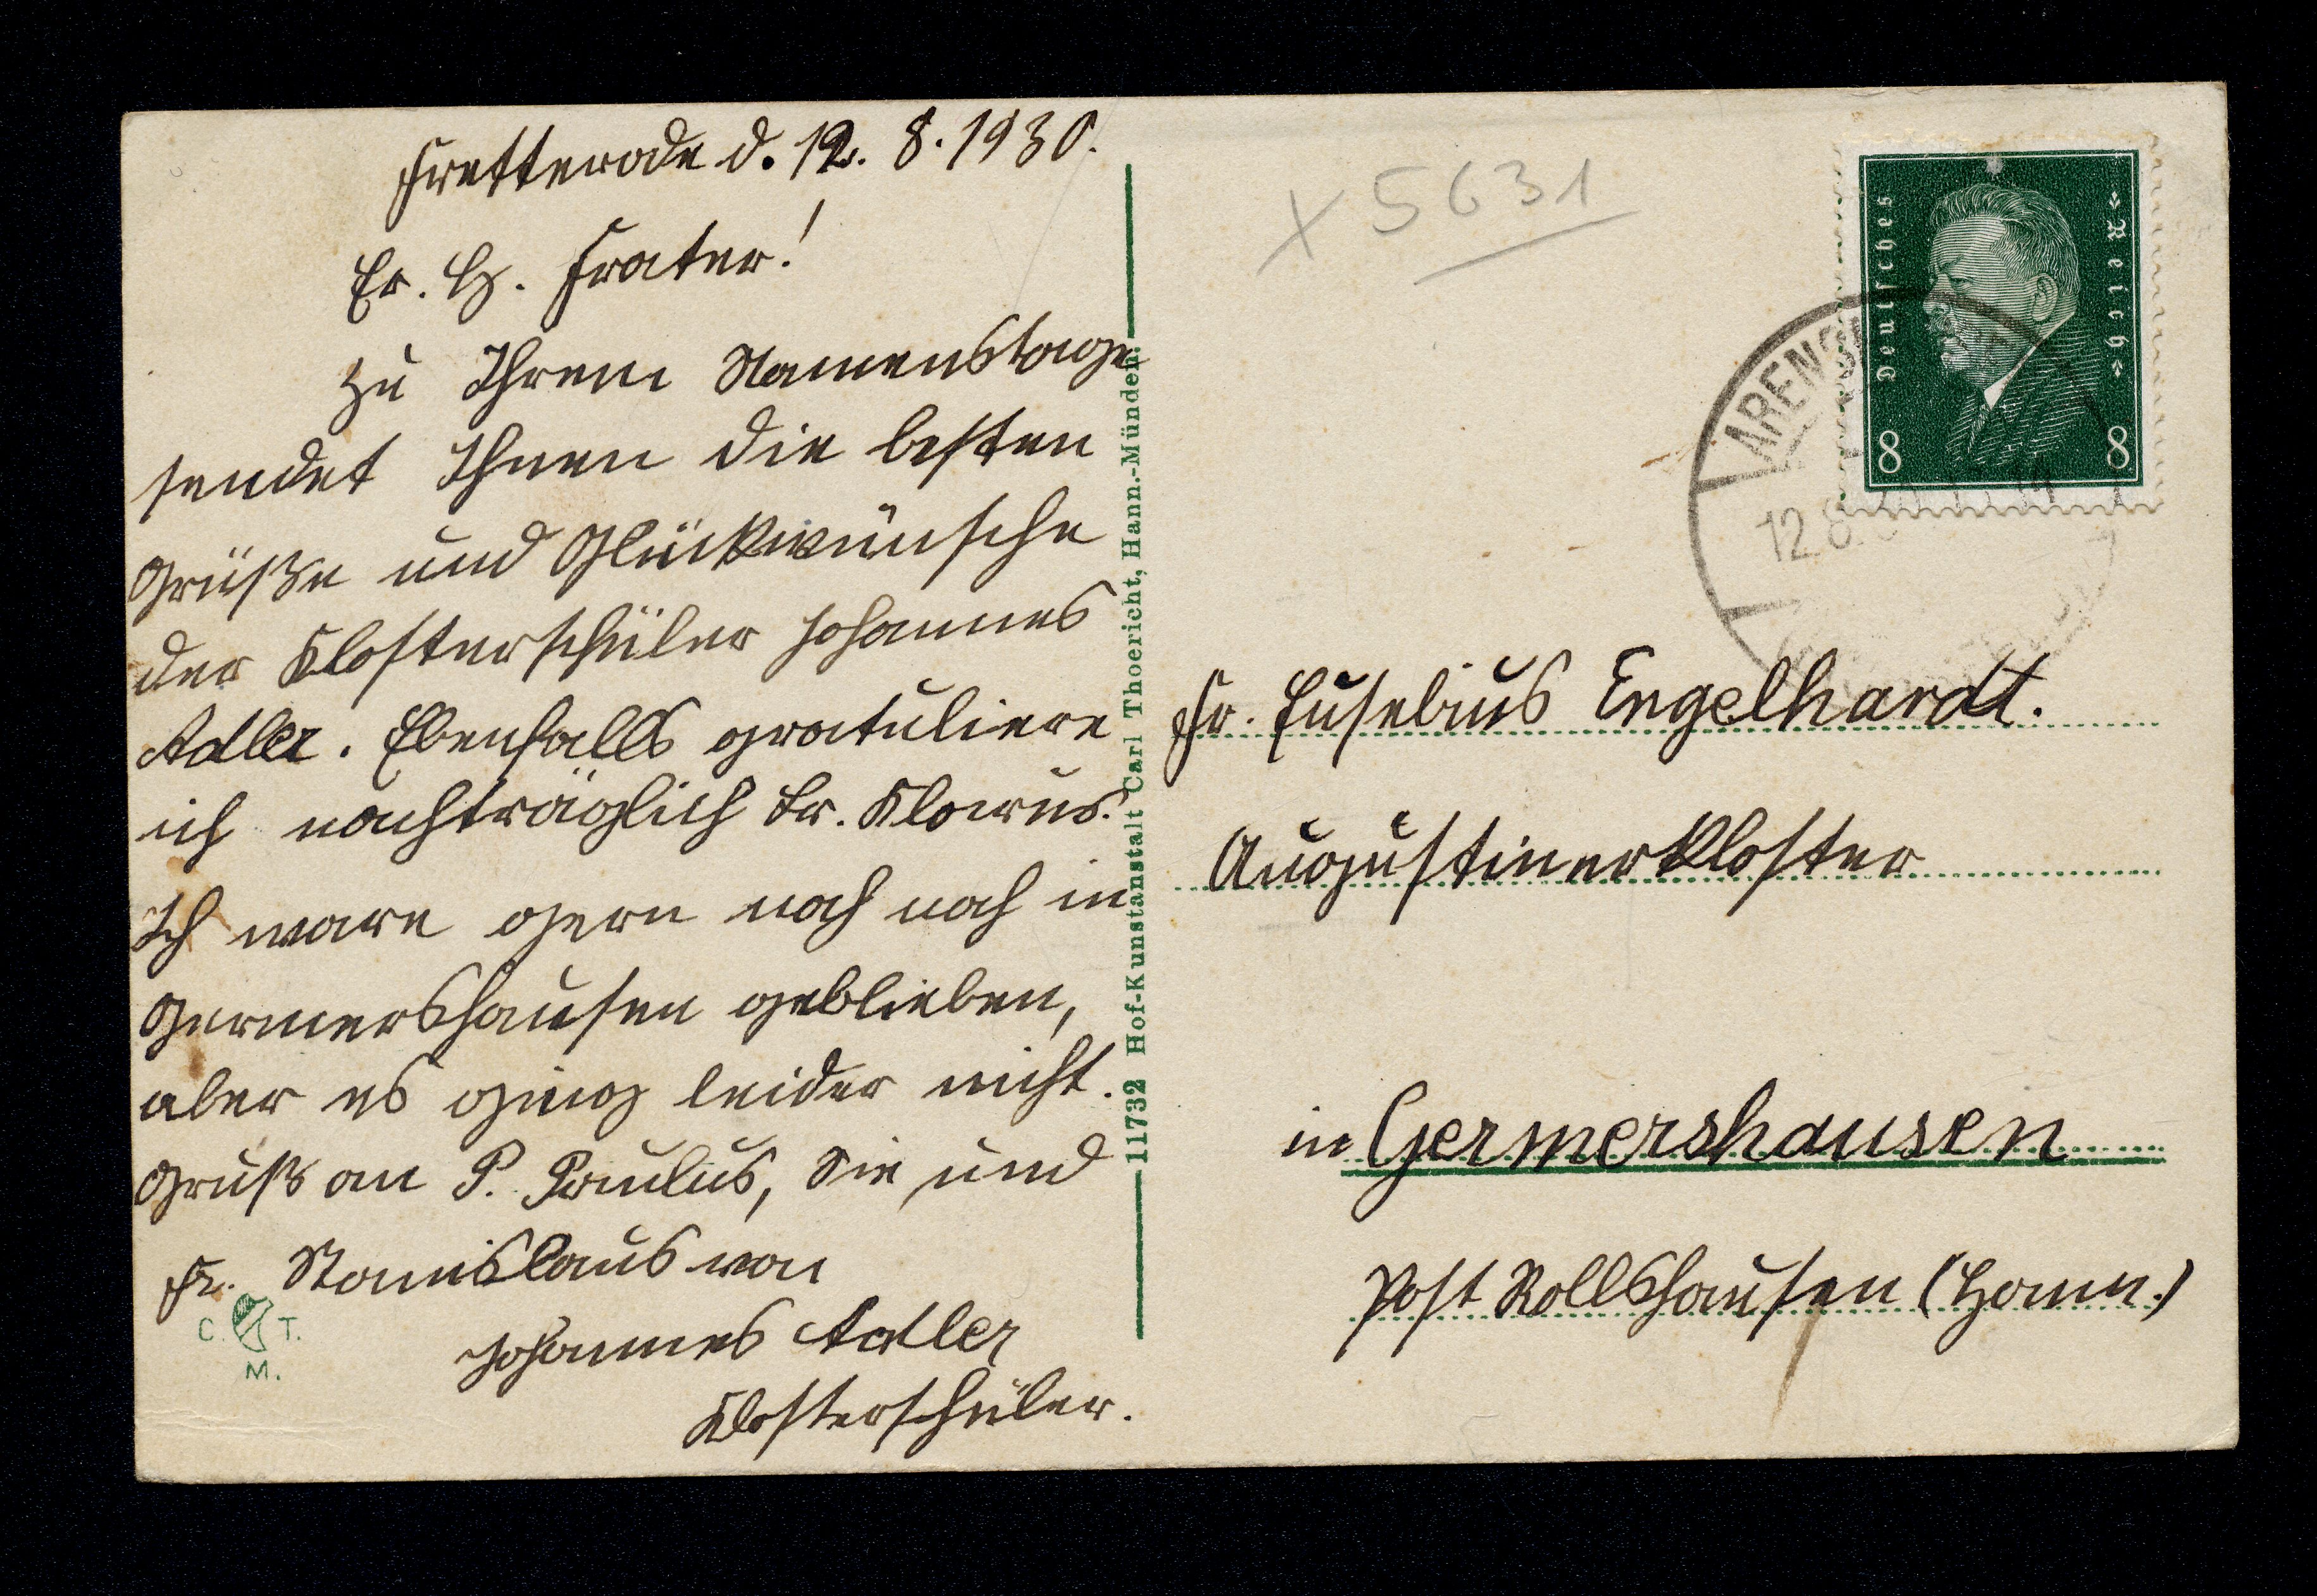 Fretterode d. 12. 8. 1930.
Er. H. Frater!
Zu Ihrem Namenstage
sendet Ihnen die besten
Grüße und Glückwünsche
der Klosterschüler Johannes
Adler. Ebenfalls gratuliere
ich nachträglich Fr. Klarus.
Ich ware gern noch noch in
Germershausen geblieben,
aber es ging leider nicht.
Gruß an P. Paulus, Sie und
Fr. Stanislaus von
Johannes Adler
Klosterschüler.
C. T.
M.
11732 Hof-Kunstanstalt Carl Thoericht, Hann.-Münden.
X 5631
Deutsches
Reich
8 8
12.8.
Fr. Eusebius Engelhardt.
Augustinerkloster
in Germershausen
Post Rollshausen (Hann.)